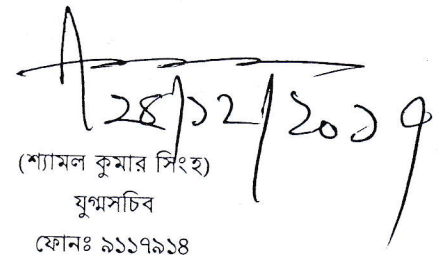 ২৪/১২/২০১৭
(শ্যামল কুমার সিংহ)
যুগ্মসচিব
ফোনঃ ৯১১৭৯১৪